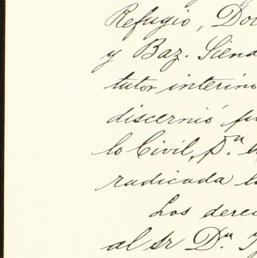 Refugio, Do
y Baz. Siena
tutor interino
discernió fu
lo Civil, p.ª
radicada la
Los derec
al sr D.ⁿ